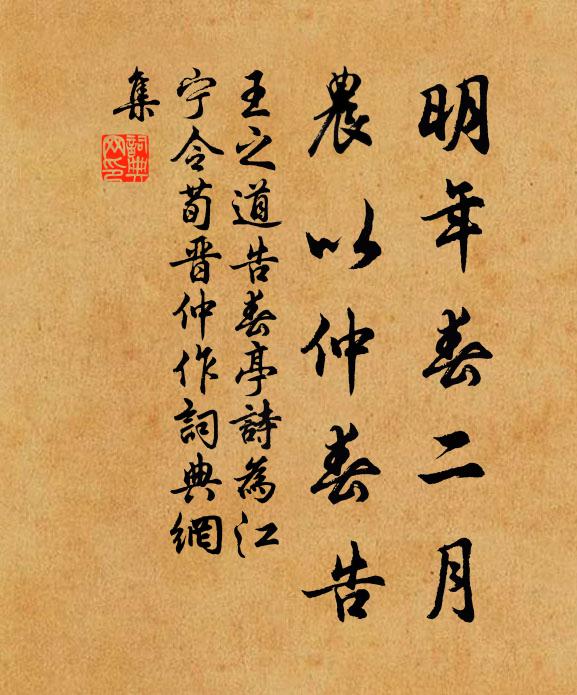 明年春二月
農以仲春告
王之道告春亭詩為江
宁令荀晋仲作詞典網
集
詞典
网印